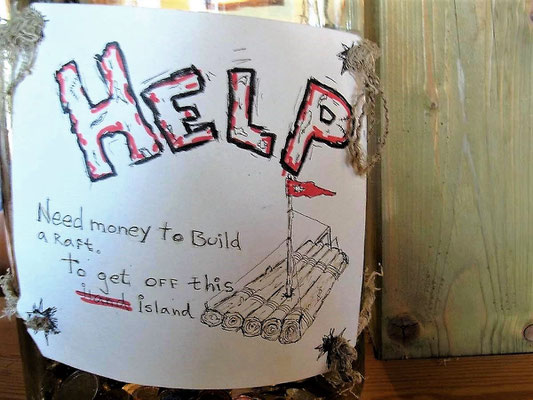 HELP
Need money to Build
a Raft.
To get OFF this
island